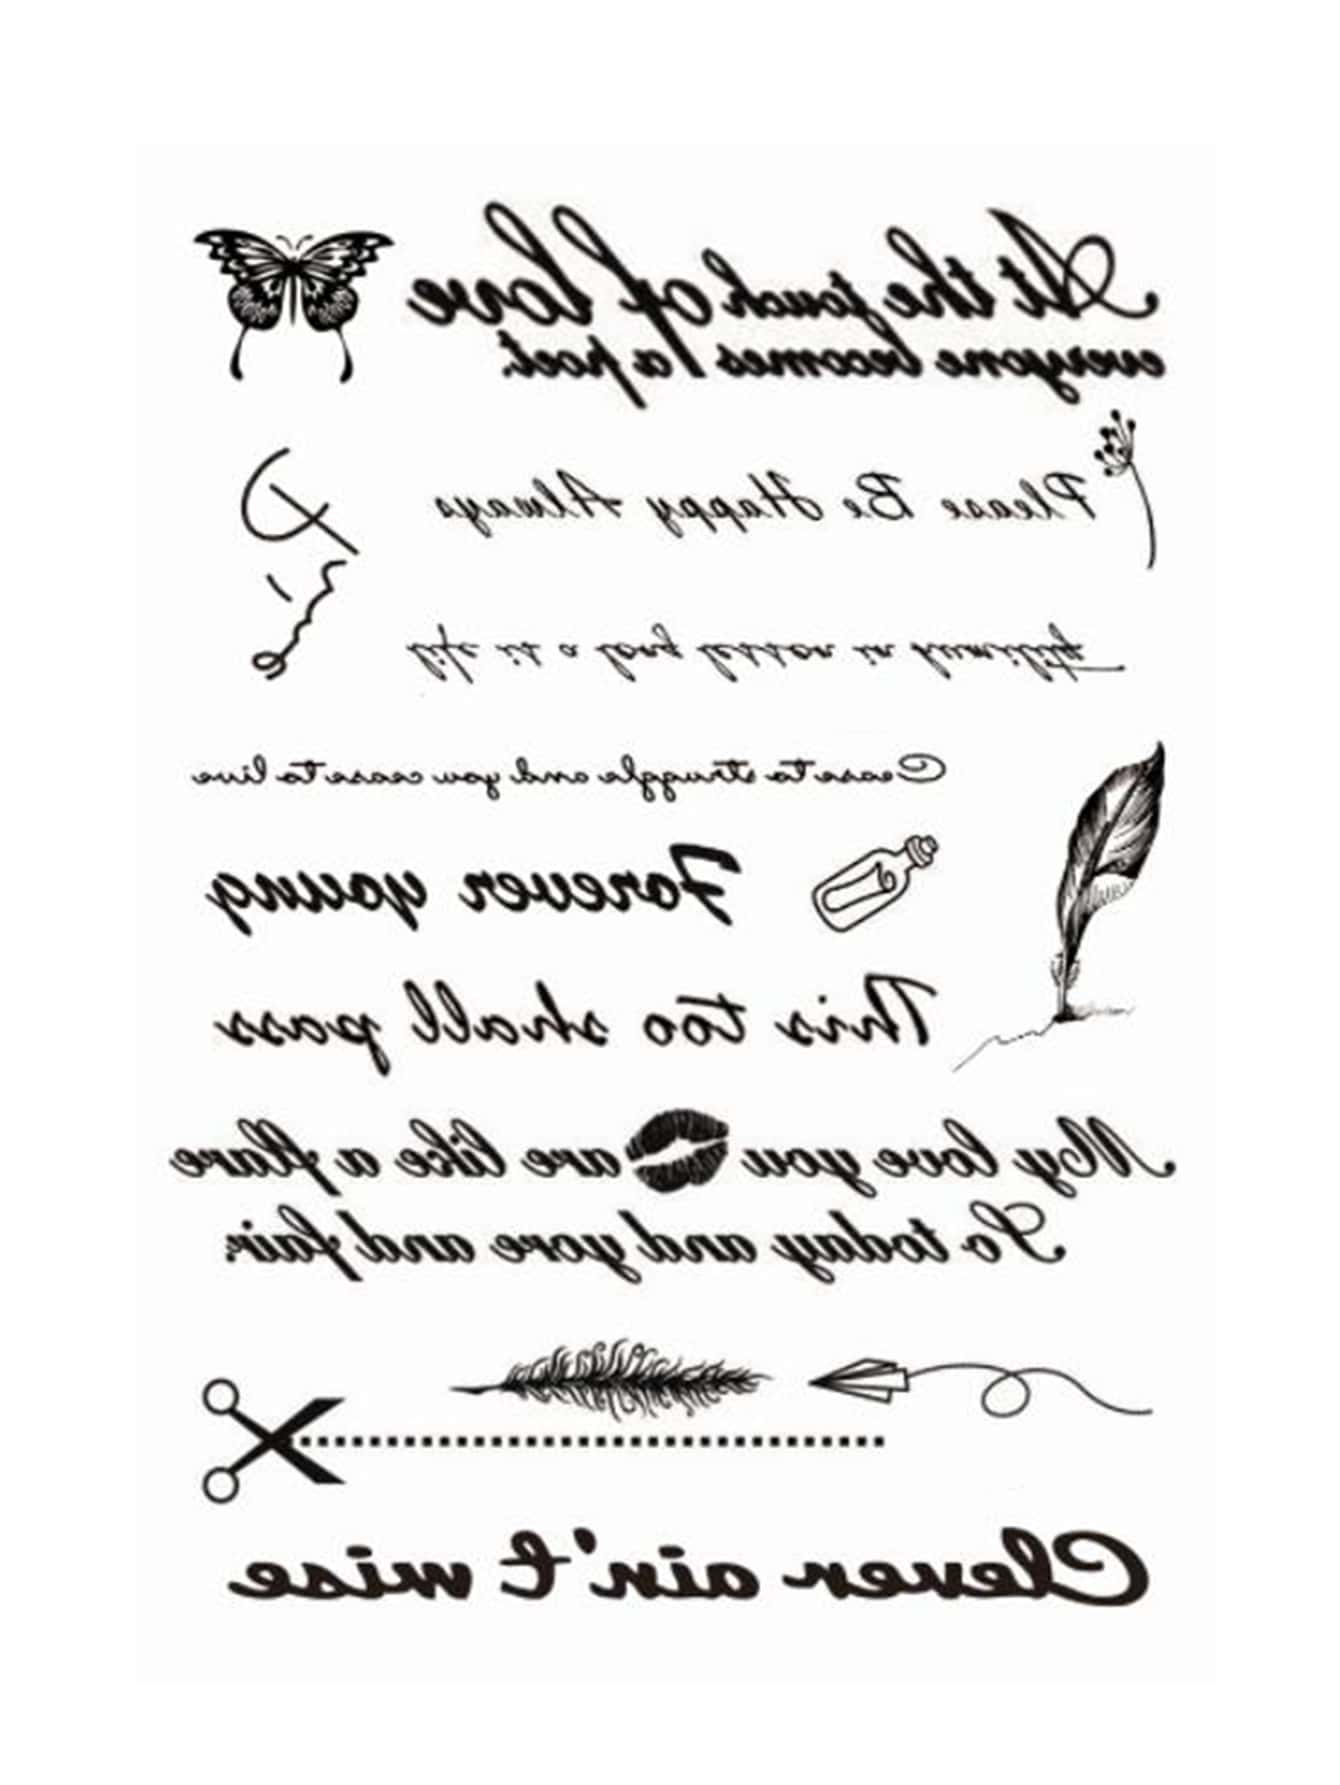 At the touch of love
everyone becomes a poet.
Please Be Happy Always
Cease to struggle and you cease to live
Forever young
This too shall pass
My love you are like a flare
So today and yore and fair.
Clever ain't wise